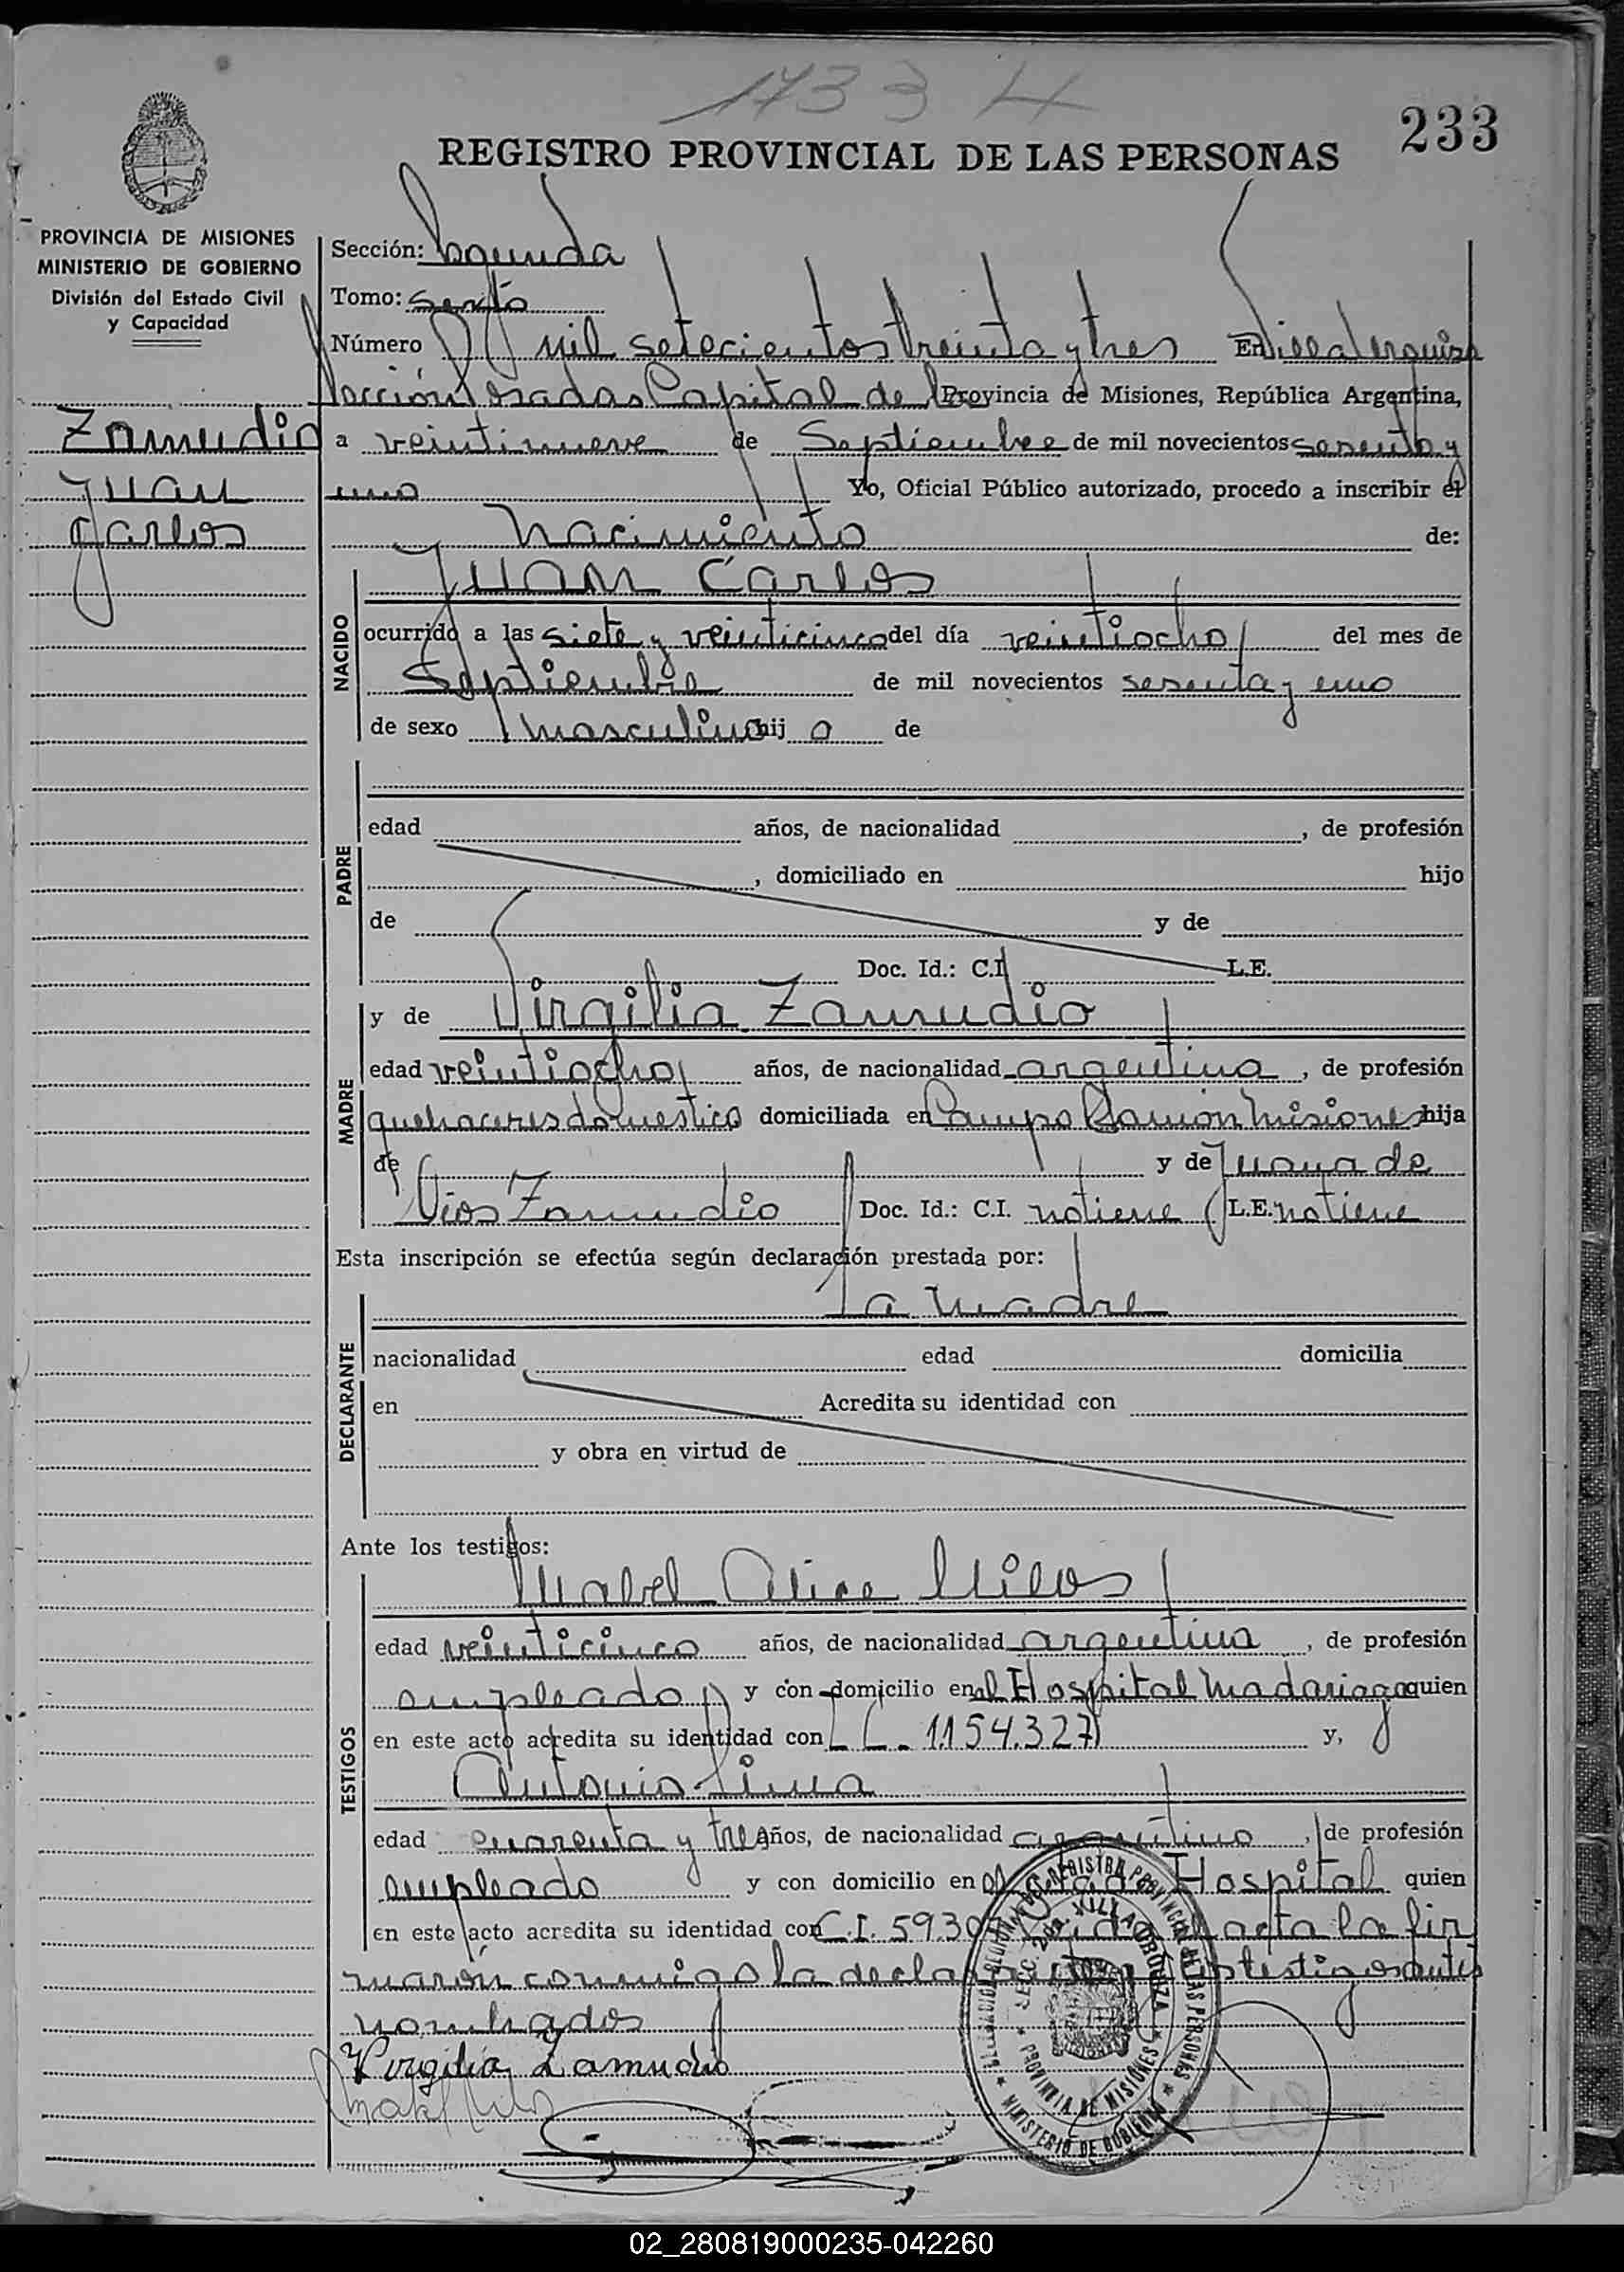 1733 4
233
REGISTRO PROVINCIAL DE LAS PERSONAS
PROVINCIA DE MISIONES
MINISTERIO DE GOBIERNO
División del Estado Civil
y Capacidad
Zamudio
Juan
Carlos
Sección: Segunda
Tomo: Sexto
Número mil setecientos treinta y tres En Villa Urquiza
Sección Posadas Capital de la Provincia de Misiones, República Argentina,
a veintinueve de Septiembre de mil novecientos sesenta y
uno Yo, Oficial Público autorizado, procedo a inscribir el
nacimiento de:
NACIDO
Juan Carlos
ocurrido a las siete y veinticinco del día veintiocho del mes de
Septiembre de mil novecientos sesenta y uno
de sexo masculino hij o de
PADRE
edad años, de nacionalidad , de profesión
, domiciliado en hijo
de y de
Doc. Id.: C.I. L.E.
MADRE
y de Virgilia Zamudio
edad veintiocho años, de nacionalidad argentina , de profesión
quehaceres domestico domiciliada en Campo Ramón Misiones hija
de y de Juana de
Dios Zamudio Doc. Id.: C.I. no tiene L.E. no tiene
Esta inscripción se efectúa según declaración prestada por:
DECLARANTE
la madre
nacionalidad edad domicilia
en Acredita su identidad con
y obra en virtud de
Ante los testigos:
TESTIGOS
Mabel
edad veinticinco años, de nacionalidad argentina , de profesión
empleado y con domicilio en el Hospital Madariaga quien
en este acto acredita su identidad con L C. 1.154.327 y,
Antonio
edad cuarenta y tres años, de nacionalidad argentino , de profesión
empleado y con domicilio en Hospital quien
en este acto acredita su identidad con C.I. 59.30 acta la fir
maron conmigo la testigos antes
nombrados
Virgilia Zamudio
DELEGACION REGIONAL DEL REGISTRO PROVINCIAL DE LAS PERSONAS
SECC. 2da. VILLA URQUIZA
PROVINCIA DE MISIONES
MINISTERIO DE GOBIERNO
02_280819000235-042260